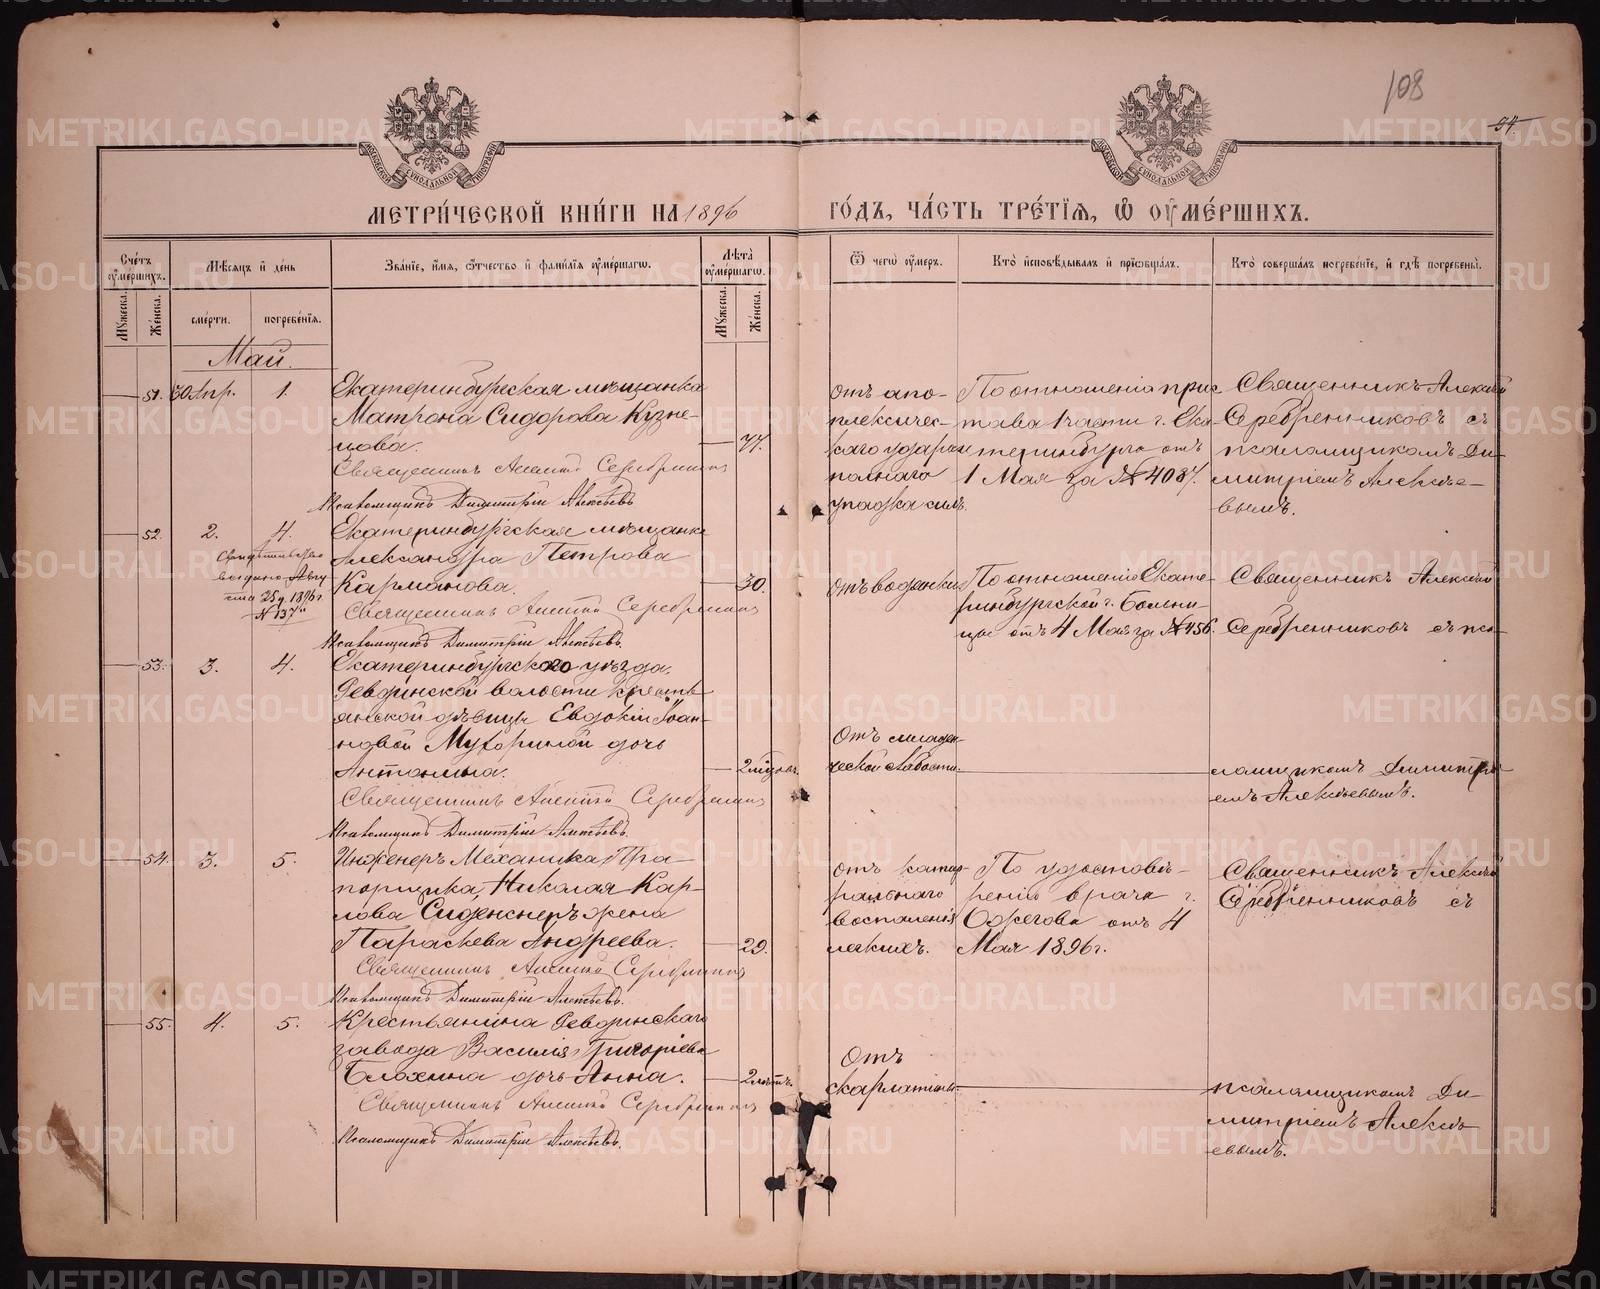 108
54.
МЕТРИ́ЧЕСКОЙ КНИ́ГИ НА 1896
ГО́ДЪ, ЧА́СТЬ ТРЕ́ТІѦ, Ѡ҆ ОУ҆МЕ́РШИХЪ.
Сче́тъ оу҆ме́ршихъ.
Мѣ́сяцъ и҆ де́нь
Зва́нїе, и҆́мѧ, ѻ҆́тчество и҆ фами́лїѧ оу҆ме́ршагѡ.
Лѣта̀ оу҆ме́ршагѡ.
Ѿ чегѡ̀ оу҆́меръ.
Кто̀ и҆сповѣ́дывалъ и҆ прїѡбща́лъ.
Кто̀ соверша́лъ погребе́нїе, и҆ гдѣ̀ погребены̀.
Му́жеска.
Же́нска.
сме́рти.
погребе́нїѧ.
Му́жеска.
Же́нска.
Май.
51. 30 Апр. 1. Екатеринбургская мѣщанка
Матрона Сидорова Кузне-
цова. 77.
Священникъ Алексѣй Серебренниковъ
Псаломщикъ Димитрій Алексѣевъ
отъ апо-
плексичес-
каго удара и
полнаго
упадка силъ.
По отношенію прис
тава 1 части г. Ека
теринбурга отъ
1 Мая за № 4087.
Священникъ Алексѣй
Серебренниковъ съ
псаломщикомъ Ди-
митріемъ Алексѣе-
вымъ.
52. 2. 4. Екатеринбургская мѣщанка
Александра Петрова
Карманова. 30.
Авгу
ста 25 д. 1896 г.
№ 137
Священникъ Алексѣй Серебренниковъ
Псаломщикъ Димитрій Алексѣевъ.
отъ водянки
По отношенію Екате-
ринбургской г. Больни-
цы отъ 4 Мая за № 456.
Священникъ Алексѣй
Серебренниковъ съ пса-
53. 3. 4. Екатеринбургскаго уѣзда,
Ревдинской волости кресть
янской дѣвицы Евдокіи Іоан-
новой Мухориной дочь
Антонина. 2 мѣсяц.
Священникъ Алексѣй Серебренниковъ
Псаломщикъ Димитрій Алексѣевъ.
Отъ младен-
ческой слабости.
ломщикомъ Димитрі-
емъ Алексѣевымъ.
54. 3. 5. Инженеръ Механика Пра-
порщика Николая Кар-
лова Сиденснеръ жена
Параскева Андреева. 29.
Священникъ Алексѣй Серебренниковъ
Псаломщикъ Димитрій Алексѣевъ.
отъ катар
ральнаго
воспаленія
легкихъ.
По удостовѣ-
ренію врача г.
Ожегова отъ 4
Мая 1896 г.
Священникъ Алексѣй
Серебренниковъ съ
55. 4. 5. Крестьянина Ревдинскаго
завода Василія Григоріева
Блохина дочь Анна. 2 лѣтъ.
Священникъ Алексѣй Серебренниковъ
Псаломщикъ Димитрій Алексѣевъ.
Отъ
скарлатины.
псаломщикомъ Ди-
митріемъ Алексѣ-
евымъ.
METRIKI.GASO-URAL.RU